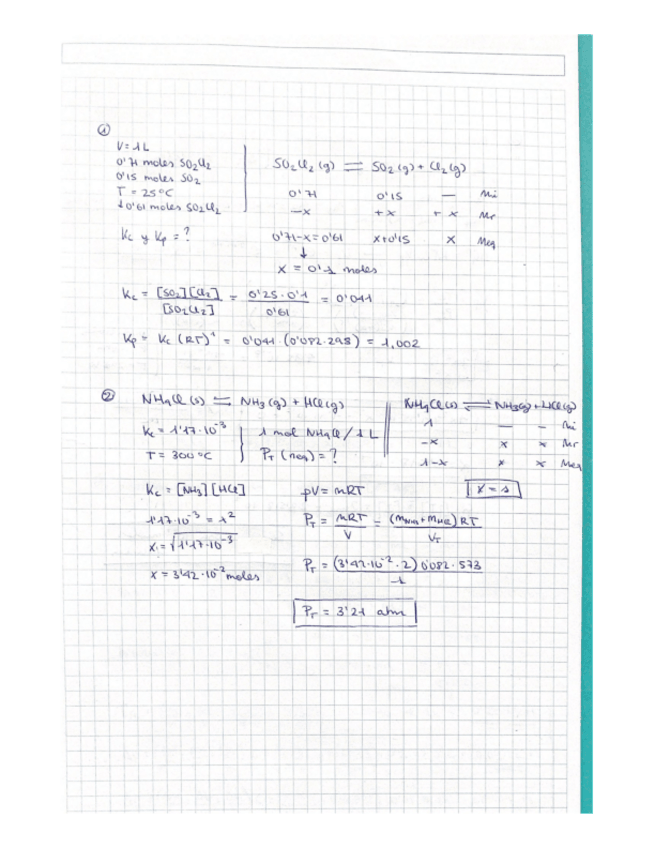 ①
V = 1L
0'71 moles SO₂Cl₂
0'15 moles SO₂
T = 25ºC
↓0'61 moles SO₂Cl₂
Kc y Kp = ?
SO₂Cl₂ (g) ⇌ SO₂ (g) + Cl₂ (g)
0'71 0'15 — ni
-x +x +x nr
0'71-x = 0'61 x+0'15 x neq
↓
x = 0'1 moles
Kc = [SO₂][Cl₂] / [SO₂Cl₂] = 0'25·0'1 / 0'61 = 0'041
Kp = Kc (RT)¹ = 0'041 (0'082·298) = 1,002
②
NH₄Cl (s) ⇌ NH₃ (g) + HCl (g)
Kc = 1'17·10⁻³
T = 300ºC
1 mol NH₄Cl / 1 L
P_T (neq) = ?
NH₄Cl (s) ⇌ NH₃(g) + HCl(g)
1 — – ni
-x x x nr
1-x x x neq
Kc = [NH₃] [HCl]
1'17·10⁻³ = x²
x = √1'17·10⁻³
x = 3'42·10⁻² moles
pV = nRT
P_T = nRT / V = (n_NH₃ + n_HCl) RT / V_T
P_T = (3'42·10⁻²·2) 0'082·573 / 1
P_T = 3'21 atm